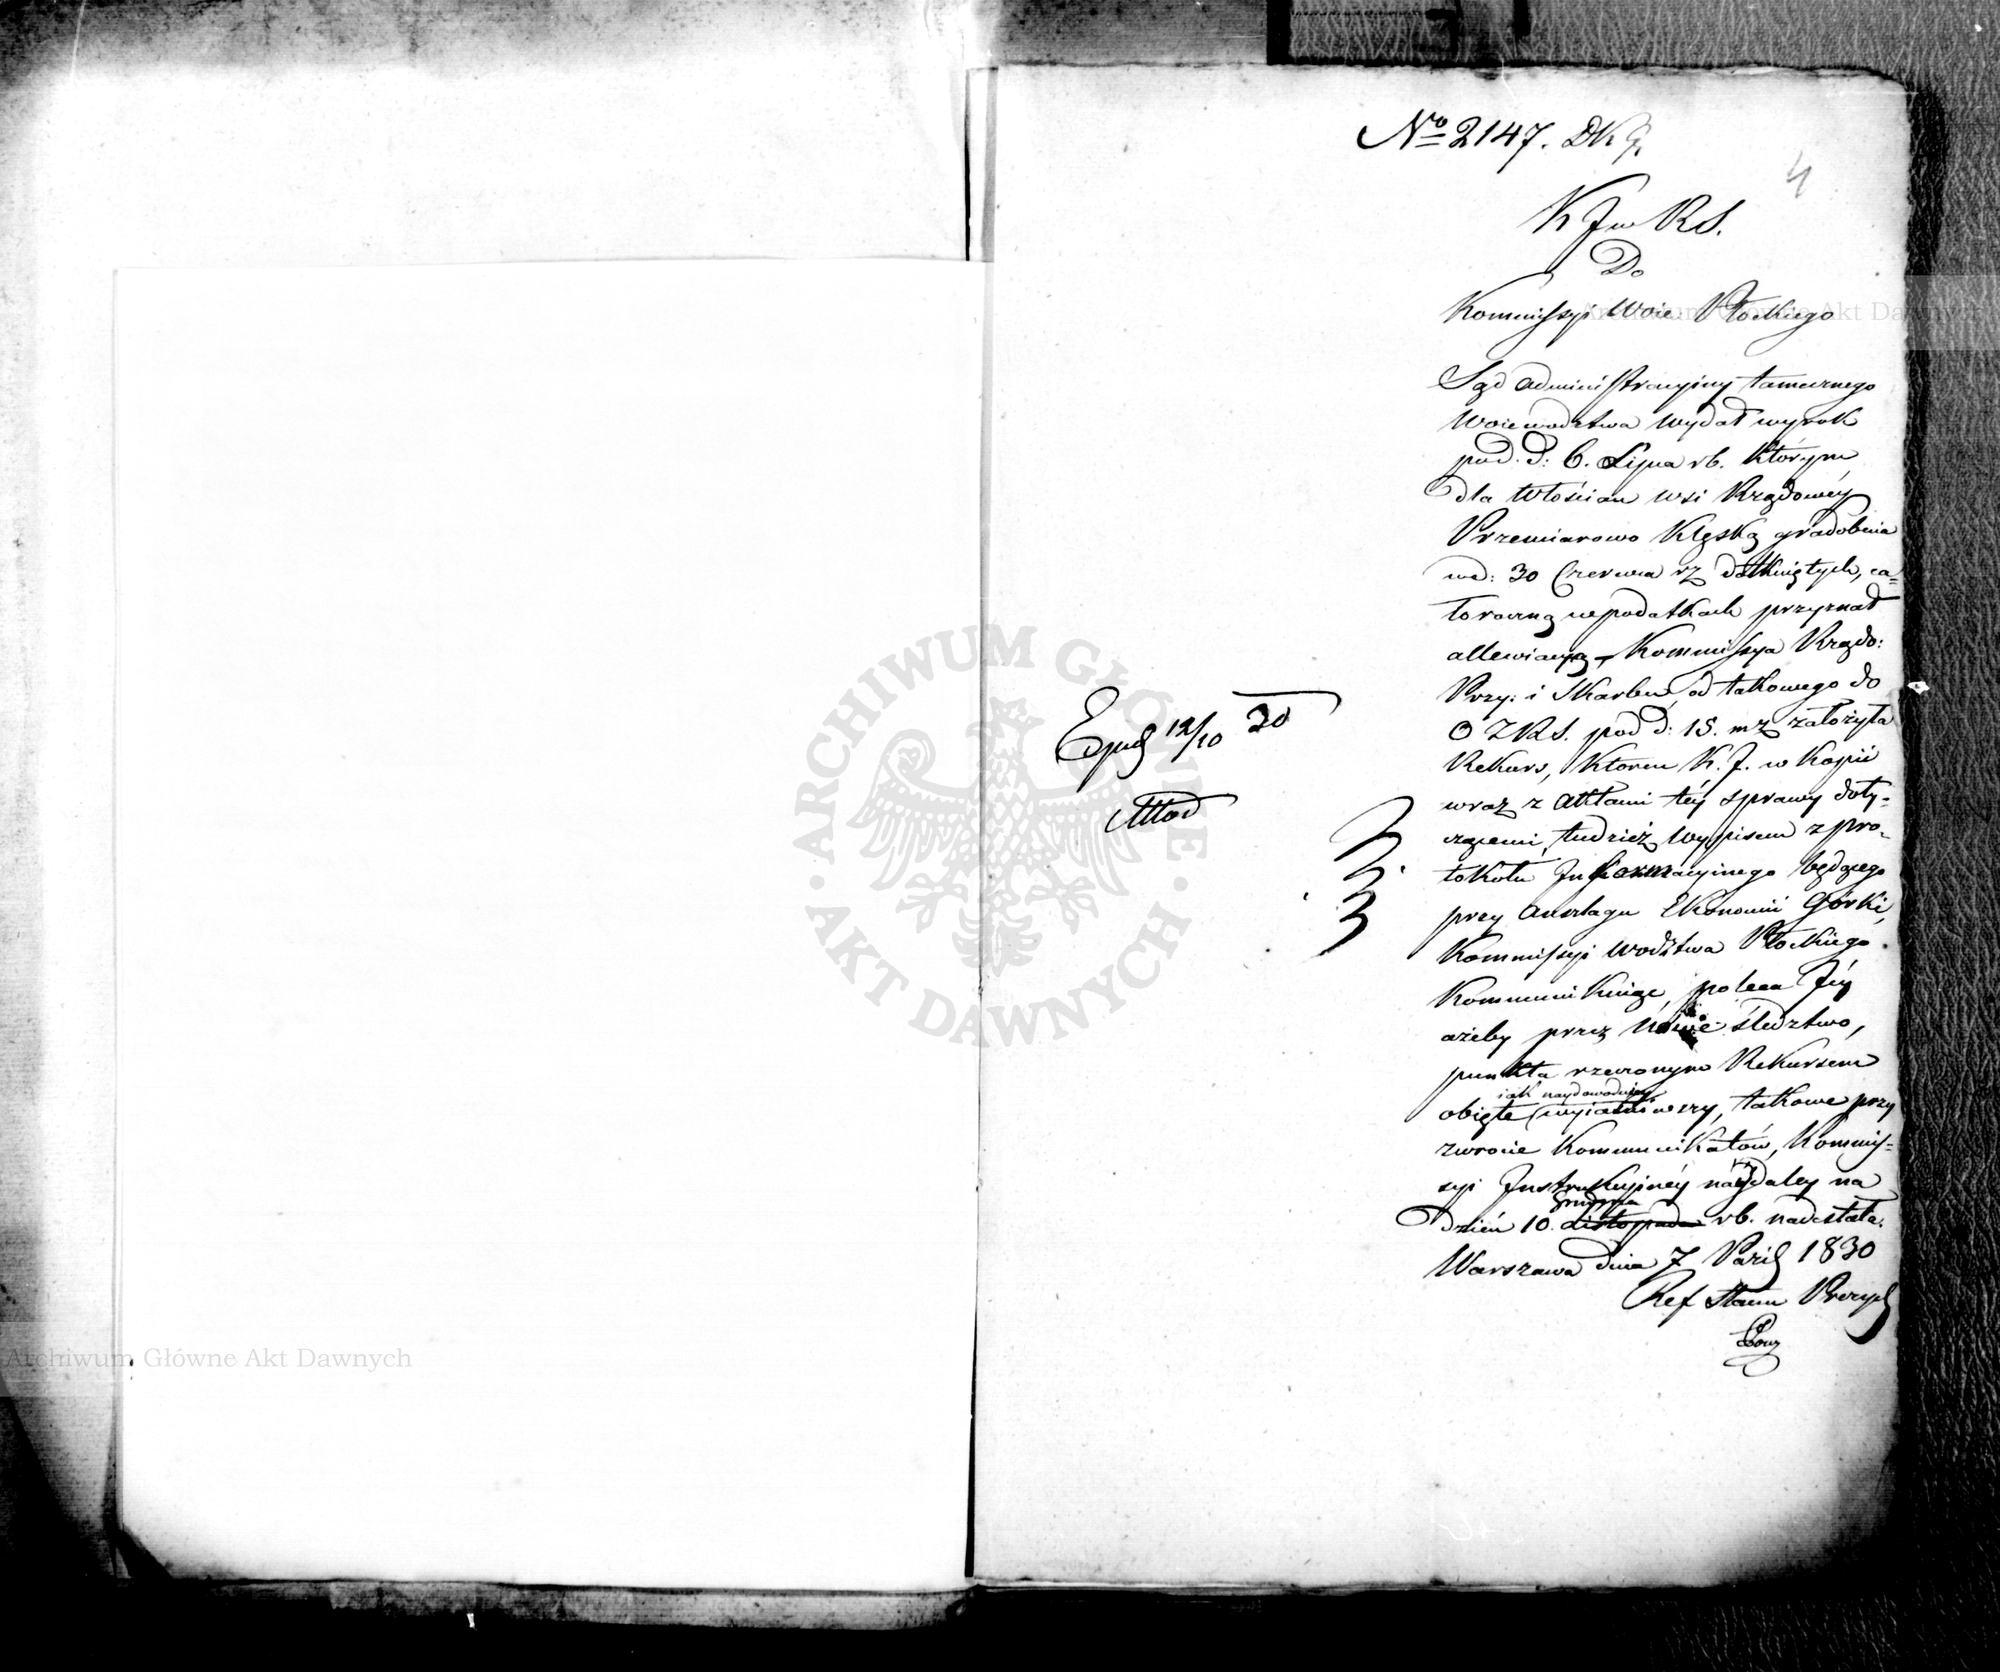 No 2147. DKJ.
4
K J w RS.
Do
Kommissyi Woie. Płockiego
Sąd administracyiny tamecznego
Woiewodztwa wydał wyrok
pod. d: 6. Lipca rb. którym
dla włościan wsi Rządowéy
Przemiarowo klęską gradobicia
w d: 30 Czerwca rz dotkniętych, ca=
łoroczną w podatkach przyznał
allewiacyą – Kommissya Rządo:
Przy: i Skarbu, od takowego do
O Z R S. pod d: 15. mz założyła
Rekurs, ktoren K. J. w kopii
wraz z aktami téy sprawy doty-
czącemi, tudzież wypisem z pro-
tokółu Informacyinego będącego
przy anszlagu Ekonomii Górki,
Kommissyi Wodztwa Płockiego
kommunikuiąc, poleca Jéy
ażeby przez nowe śledztwo,
punkta rzeczonym Rekursem
iak naydowodniey
obięte wyiaśniwszy, takowe przy
zwrocie kommunikatów, Kommis-
syi Instrukcyinéy naydaley na
Grudnia
dzień 10. Listopada rb. nadesłała.
Warszawa dnia 7 Paźd 1830
Ref Stanu Prezyd
Exped 12/10 30
ARCHIWUM GŁÓWNE
AKT DAWNYCH
Archiwum Główne Akt Dawnych
Archiwum Główne Akt Dawnych